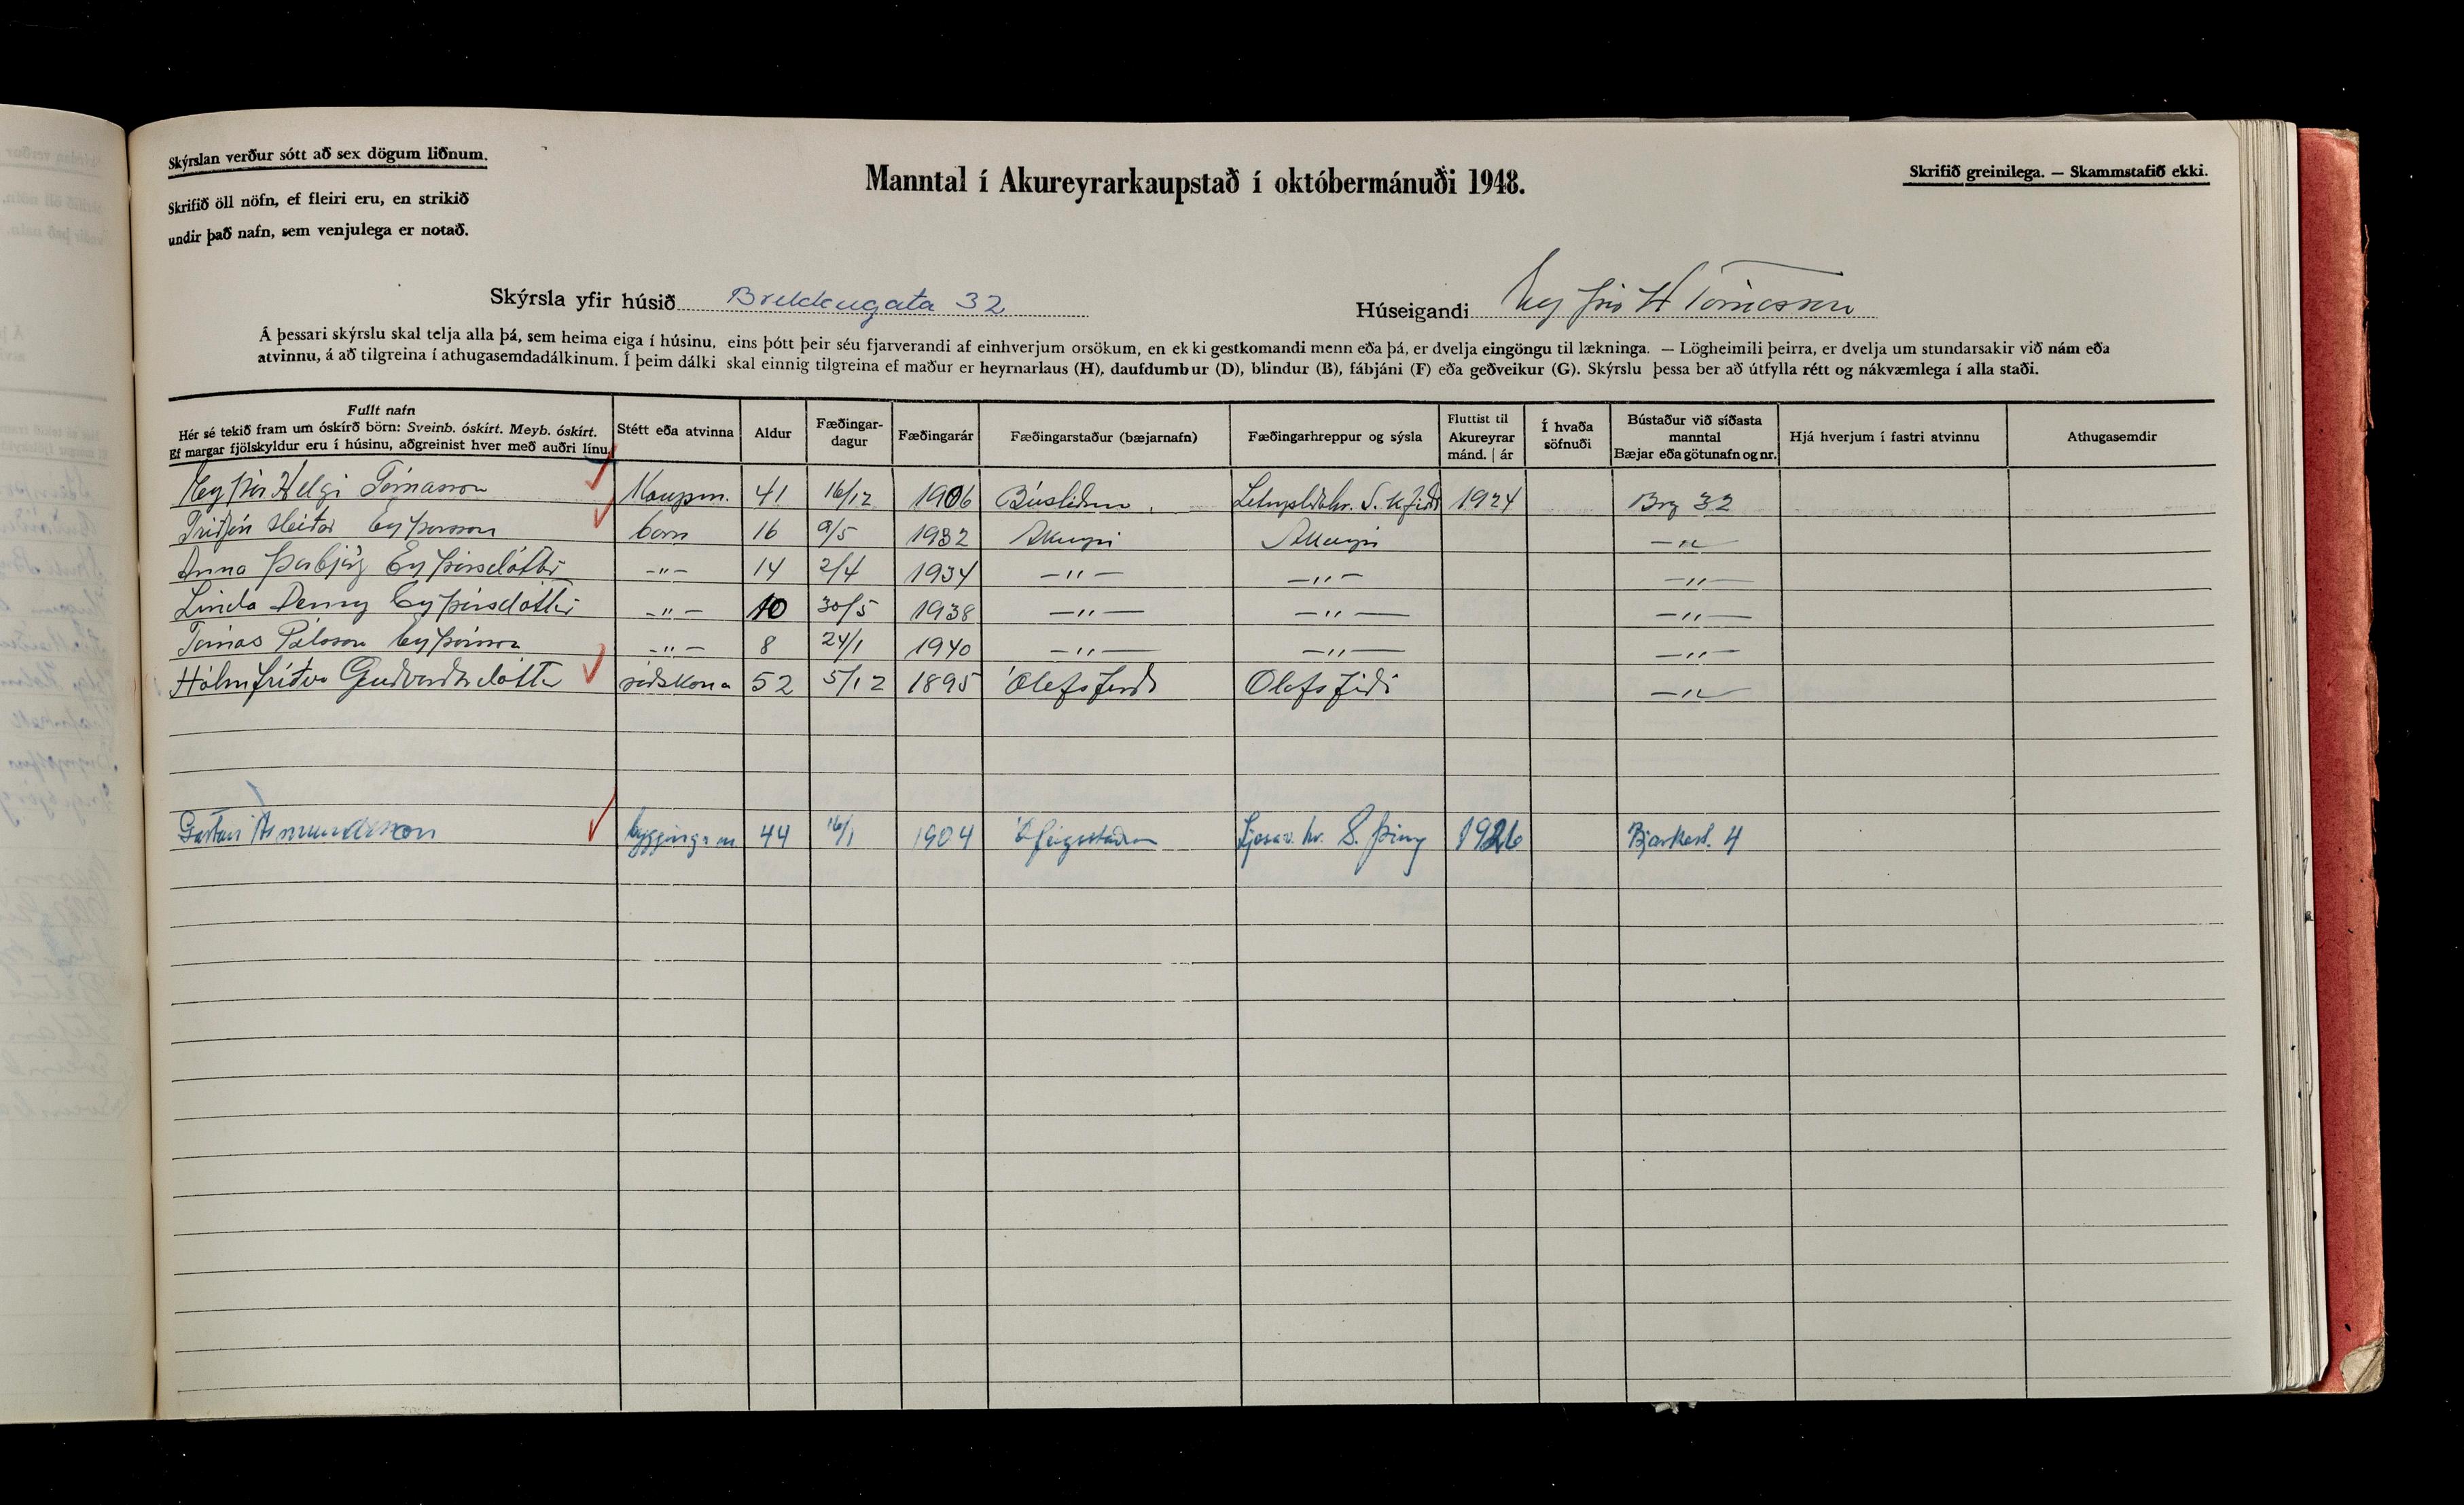 Skýrslan verður sótt að sex dögum liðnum.
Skrifið öll nöfn, ef fleiri eru, en strikið
undir það nafn, sem venjulega er notað.
Manntal í Akureyrarkaupstað í októbermánuði 1948.
Skrifið greinilega. — Skammstafið ekki.
Skýrsla yfir húsið Brekkugata 32
Húseigandi Eyþór H Tómasson
Á þessari skýrslu skal telja alla þá, sem heima eiga í húsinu, eins þótt þeir séu fjarverandi af einhverjum orsökum, en ekki gestkomandi menn eða þá, er dvelja eingöngu til lækninga. — Lögheimili þeirra, er dvelja um stundarsakir við nám eða
atvinnu, á að tilgreina í athugasemdadálkinum. Í þeim dálki skal einnig tilgreina ef maður er heyrnarlaus (H), daufdumbur (D), blindur (B), fábjáni (F) eða geðveikur (G). Skýrslu þessa ber að útfylla rétt og nákvæmlega í alla staði.
Fullt nafn
Hér sé tekið fram um óskírð börn: Sveinb. óskírt. Meyb. óskírt.
Ef margar fjölskyldur eru í húsinu, aðgreinist hver með auðri línu.
Stétt eða atvinna
Aldur
Fæðingar-
dagur
Fæðingarár
Fæðingarstaður (bæjarnafn)
Fæðingarhreppur og sýsla
Fluttist til
Akureyrar
mánd. | ár
Í hvaða
söfnuði
Bústaður við síðasta
manntal
Bæjar eða götunafn og nr.
Hjá hverjum í fastri atvinnu
Athugasemdir
Eyþór Helgi Tómasson Kaupm. 41 16/12 1906 1924 Brg 32
Heiðar Eyþórsson barn 16 9/5 1932 Akureyri Akureyri —"—
Anna Þorbjörg Eyþórsdóttir —"— 14 2/4 1934 —"— —"— —"—
Linda Denny Eyþórsdóttir —"— 10 30/5 1938 —"— —"— —"—
Tómas Pálsson Eyþórsson —"— 8 24/1 1940 —"— —"— —"—
Hólmfríður Guðvarðsdóttir ráðskona 52 5/12 1895 Ólafsfirði Ólafsfirði —"—
Ásmundsson byggingam 44 16/1 1904 Ófeigsstaðir Ljósav. hr. S. Þing 1926 Bjarkast. 4